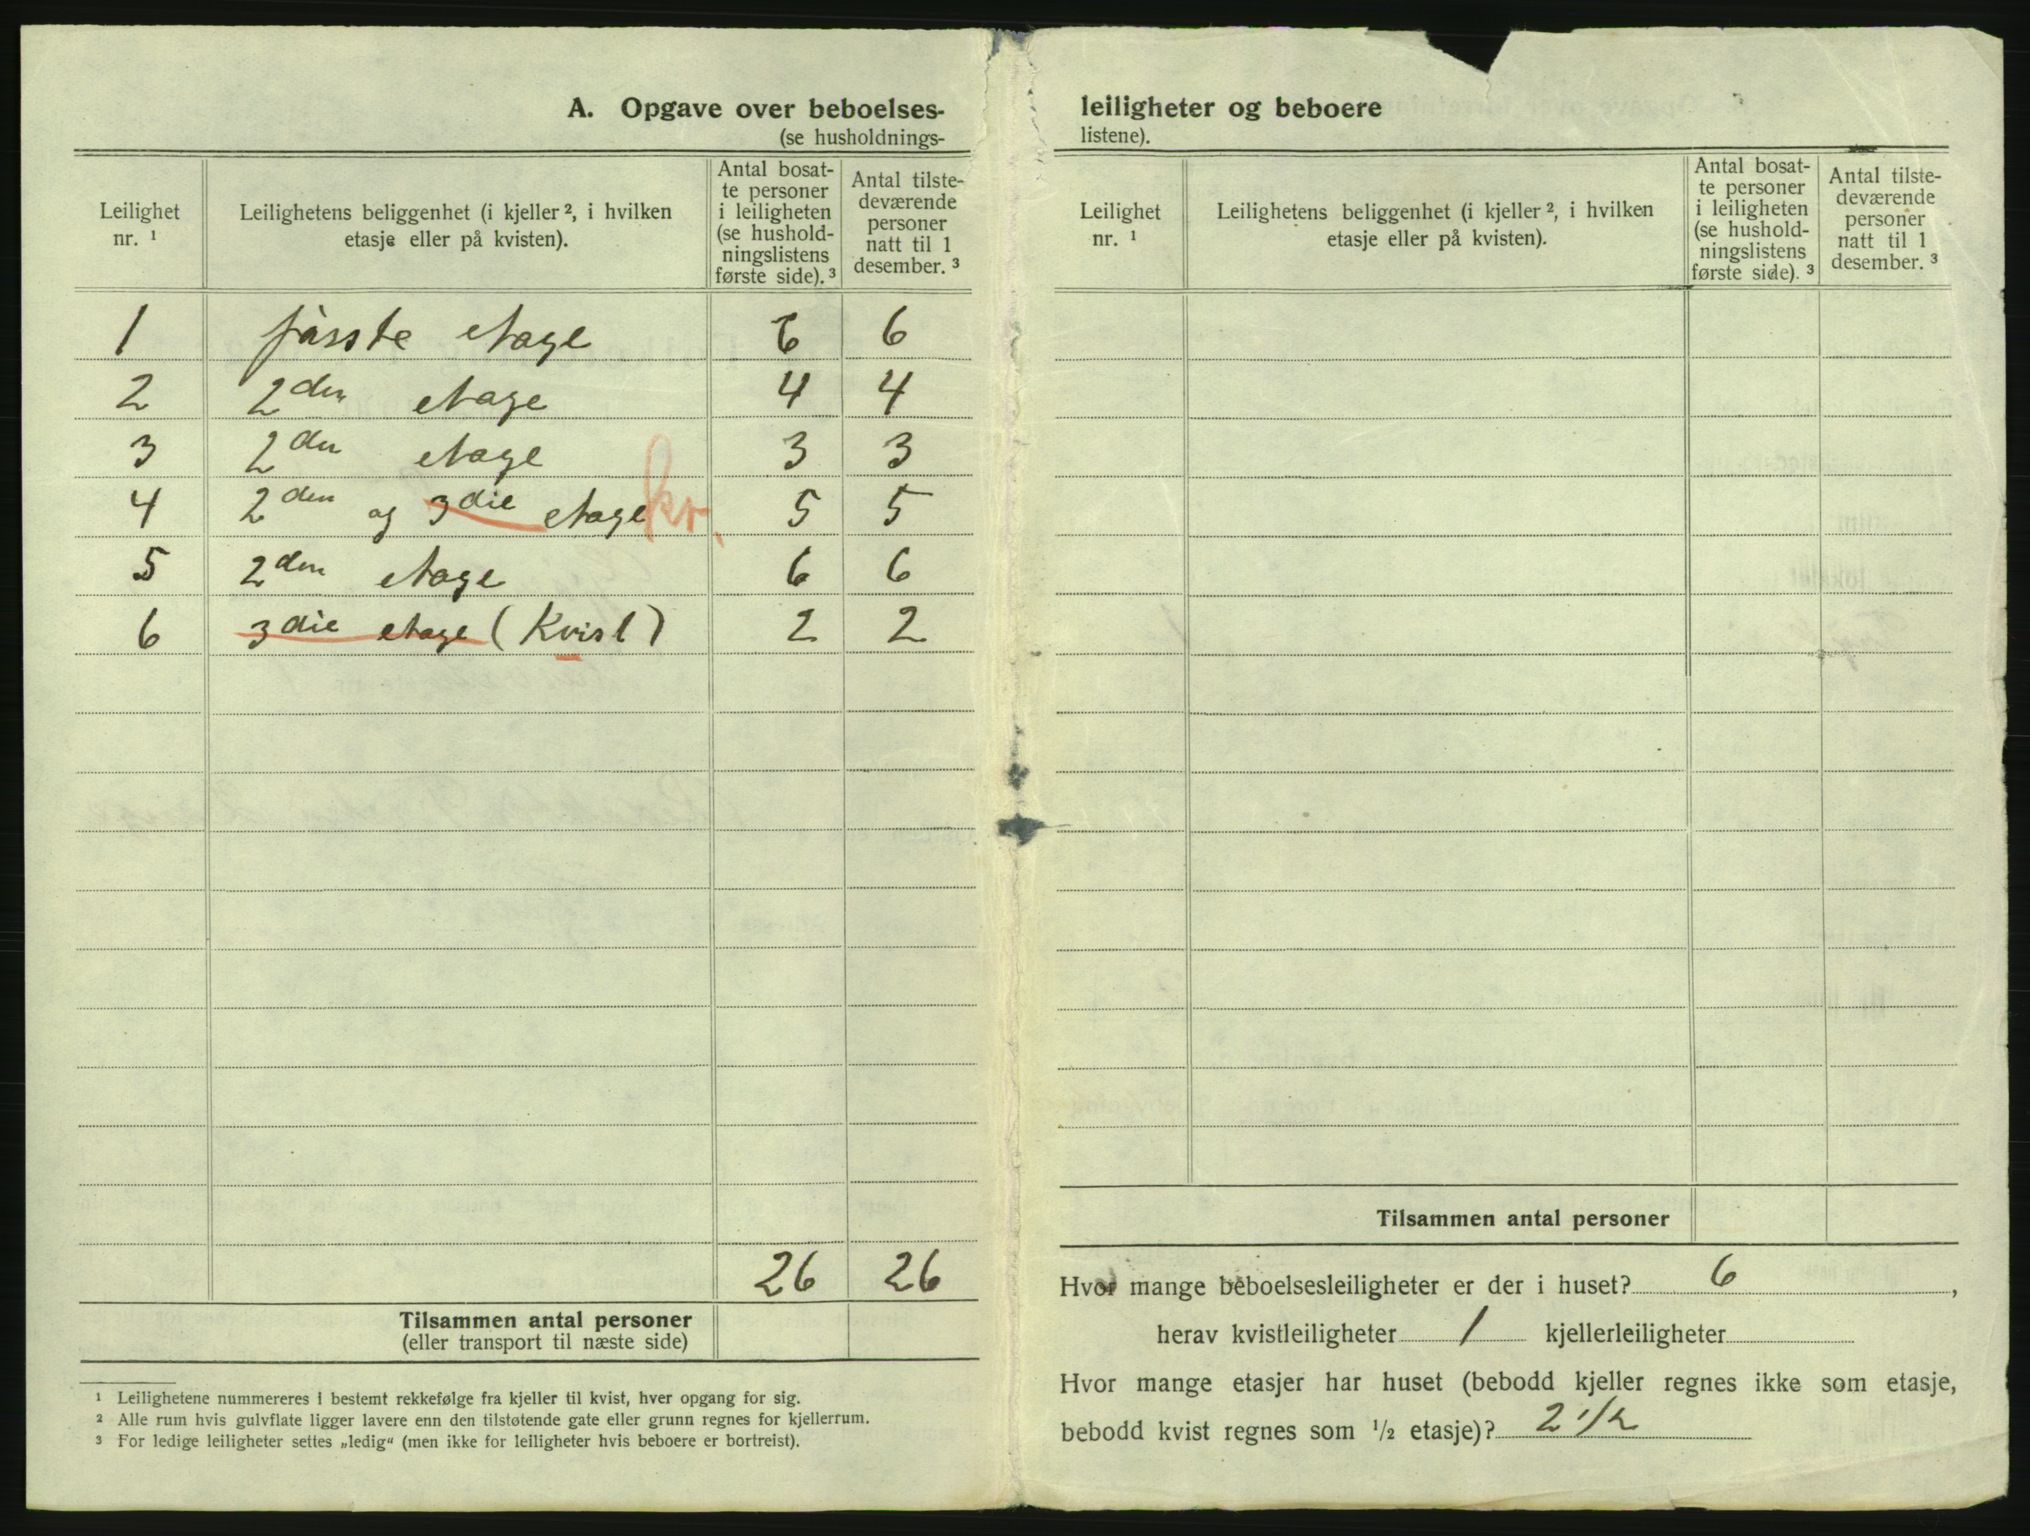 A. Opgave over beboelses-
(se husholdnings-
Leilighet nr. ¹
Leilighetens beliggenhet (i kjeller ², i hvilken etasje eller på kvisten).
Antal bosat-
te personer
i leiligheten
(se hushold-
ningslistens
første side). ³
Antal tilste-
deværende
personer
natt til 1
desember. ³
1 første etage 6 6
2 2den etage 4 4
3 2den etage 3 3
4 2den og 3die etage kv. 5 5
5 2den etage 6 6
6 3die etage (Kvist) 2 2
26 26
Tilsammen antal personer
(eller transport til næste side)
¹ Leilighetene nummereres i bestemt rekkefølge fra kjeller til kvist, hver opgang for sig.
² Alle rum hvis gulvflate ligger lavere enn den tilstøtende gate eller grunn regnes for kjellerrum.
³ For ledige leiligheter settes „ledig“ (men ikke for leiligheter hvis beboere er bortreist).
leiligheter og beboere
listene).
Leilighet nr. ¹
Leilighetens beliggenhet (i kjeller ², i hvilken etasje eller på kvisten).
Antal bosat-
te personer
i leiligheten
(se hushold-
ningslistens
første side). ³
Antal tilste-
deværende
personer
natt til 1
desember. ³
Tilsammen antal personer
Hvor mange beboelsesleiligheter er der i huset? 6,
herav kvistleiligheter 1 kjellerleiligheter
Hvor mange etasjer har huset (bebodd kjeller regnes ikke som etasje,
bebodd kvist regnes som ½ etasje)? 2 1/2